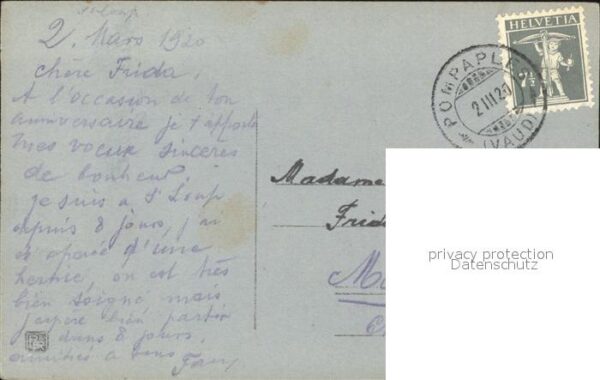 St Loup
2. Mars 1920
Chère Frida,
A l'occasion de ton
anniversaire je t'apporte
mes voeux sincères
de bonheur.
je suis à St Loup
depuis 8 jours, j'ai
été opéré d'une
hernie, on est très
bien soigné mais
j'espère bien partir
dans 8 jours,
amitiés à tous
HELVETIA
7½
POMPAPLES
2 III 20
(VAUD)
Madame
Frida
privacy protection
Datenschutz